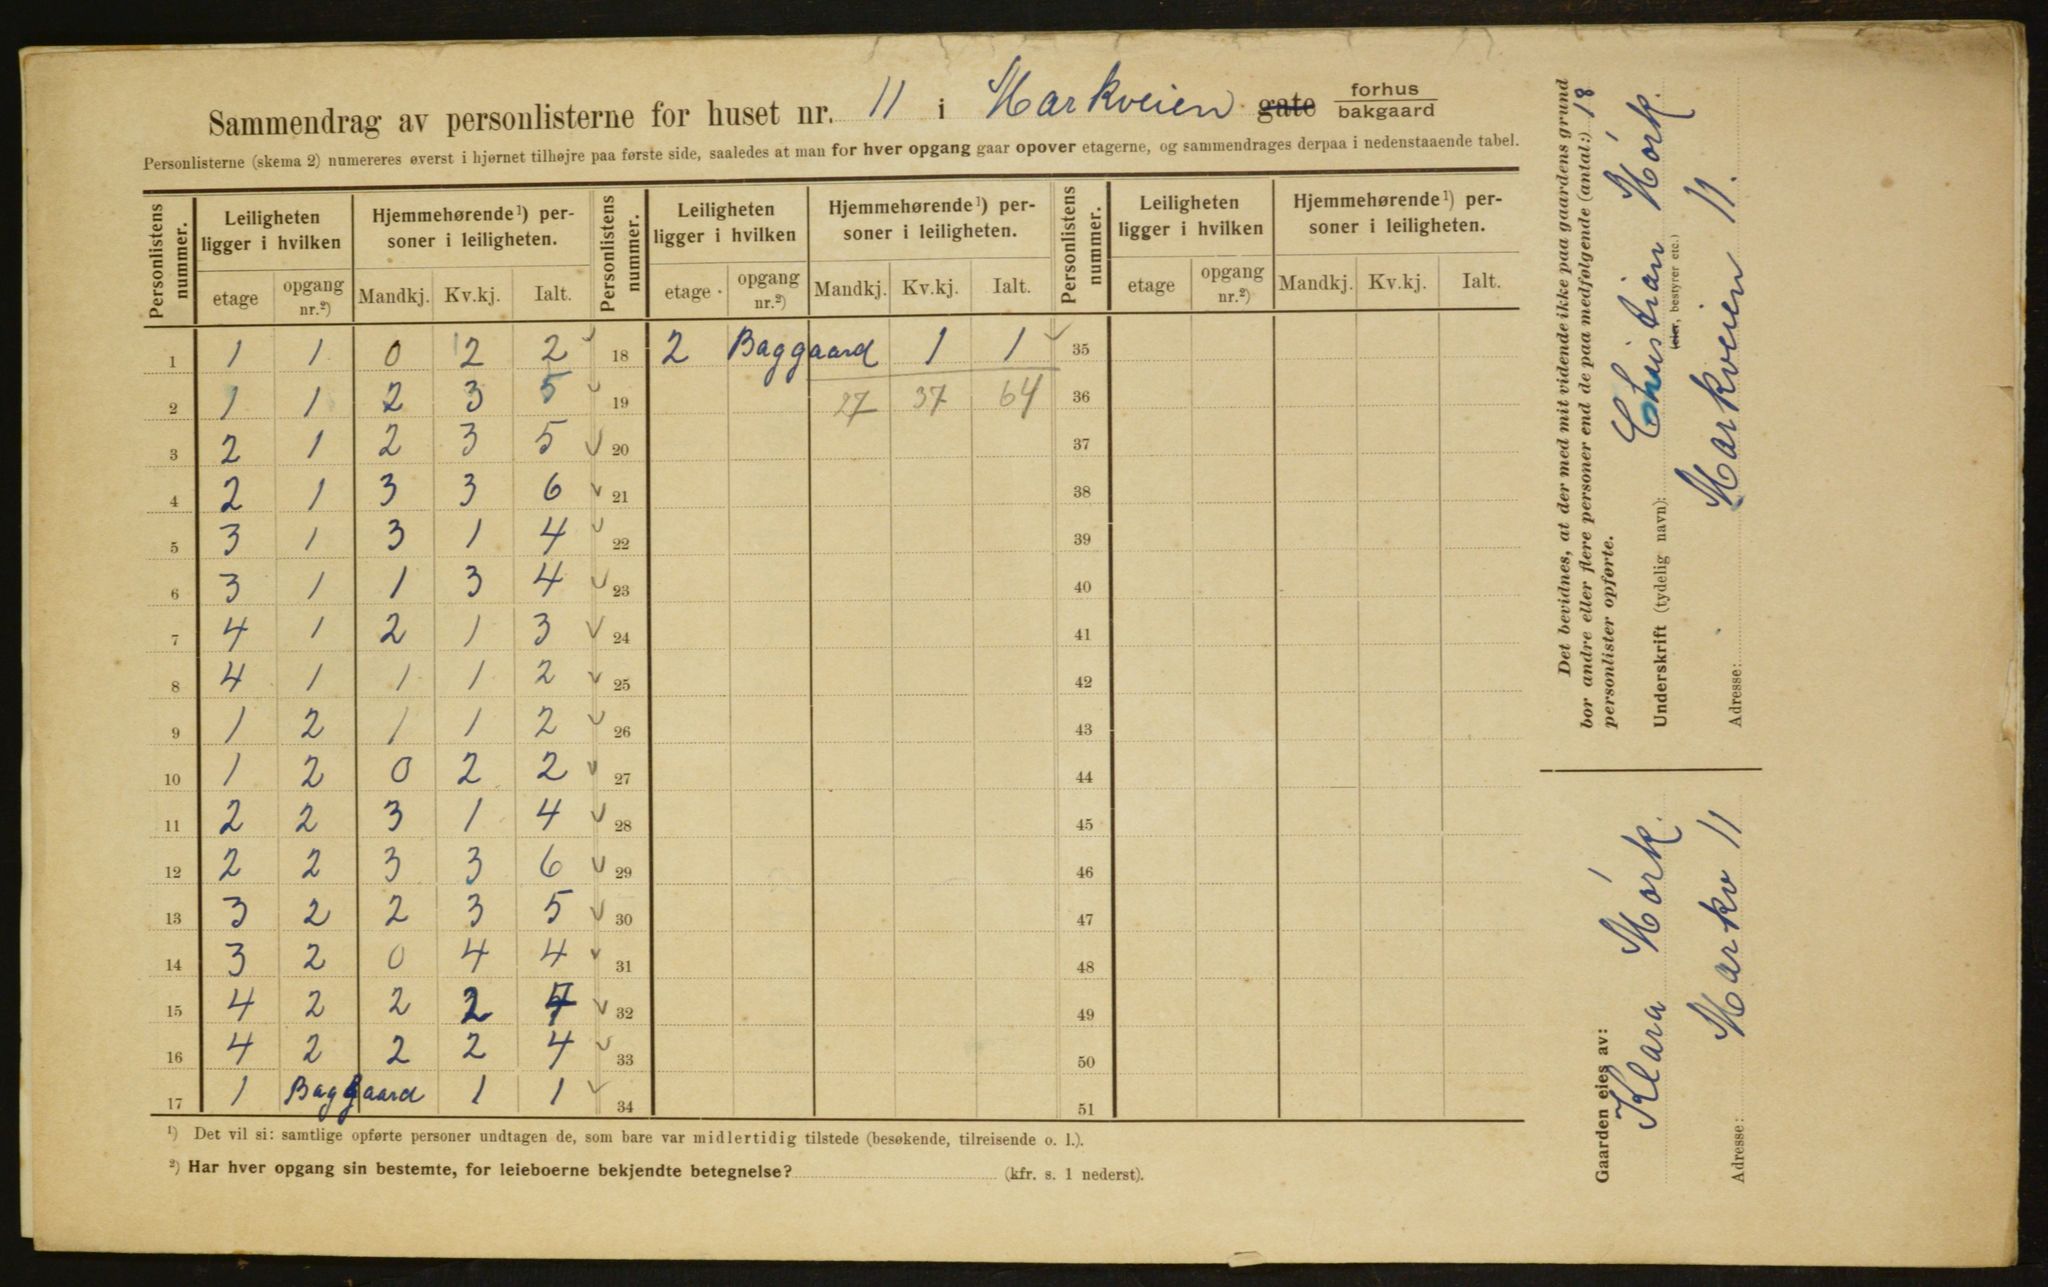 Sammendrag av personlisterne for huset nr. 11 i Markveien gate forhus bakgaard
Personlisterne (skema 2) numereres øverst i hjørnet tilhøjre paa første side, saaledes at man for hver opgang gaar opover etagerne, og sammendrages derpaa i nedenstaaende tabel.
Personlistens nummer. Leiligheten ligger i hvilken Hjemmehørende¹) personer i leiligheten. Personlistens nummer. Leiligheten ligger i hvilken Hjemmehørende¹) personer i leiligheten. Personlistens nummer. Leiligheten ligger i hvilken Hjemmehørende¹) personer i leiligheten.
etage opgang nr.²) Mandkj. Kv.kj. Ialt. etage opgang nr.²) Mandkj. Kv.kj. Ialt. etage opgang nr.²) Mandkj. Kv.kj. Ialt.
1 1 1 0 2 2 18 2 Baggaard 1 1 35
2 1 1 2 3 5 19 27 37 64 36
3 2 1 2 3 5 20 37
4 2 1 3 3 6 21 38
5 3 1 3 1 4 22 39
6 3 1 1 3 4 23 40
7 4 1 2 1 3 24 41
8 4 1 1 1 2 25 42
9 1 2 1 1 2 26 43
10 1 2 0 2 2 27 44
11 2 2 3 1 4 28 45
12 2 2 3 3 6 29 46
13 3 2 2 3 5 30 47
14 3 2 0 4 4 31 48
15 4 2 2 2 32 49
16 4 2 2 2 4 33 50
17 1 Baggaard 1 1 34 51
¹) Det vil si: samtlige opførte personer undtagen de, som bare var midlertidig tilstede (besøkende, tilreisende o. l.).
²) Har hver opgang sin bestemte, for leieboerne bekjendte betegnelse? (kfr. s. 1 nederst).
Det bevidnes, at der med mit vidende ikke paa gaardens grund
bor andre eller flere personer end de paa medfølgende (antal:) 18
personlister opførte.
Underskrift (tydelig navn): Christian Mórk.
(eier, bestyrer etc.)
Adresse: Markveien 11.
Gaarden eies av:
Klara Mórk.
Adresse: Markv 11